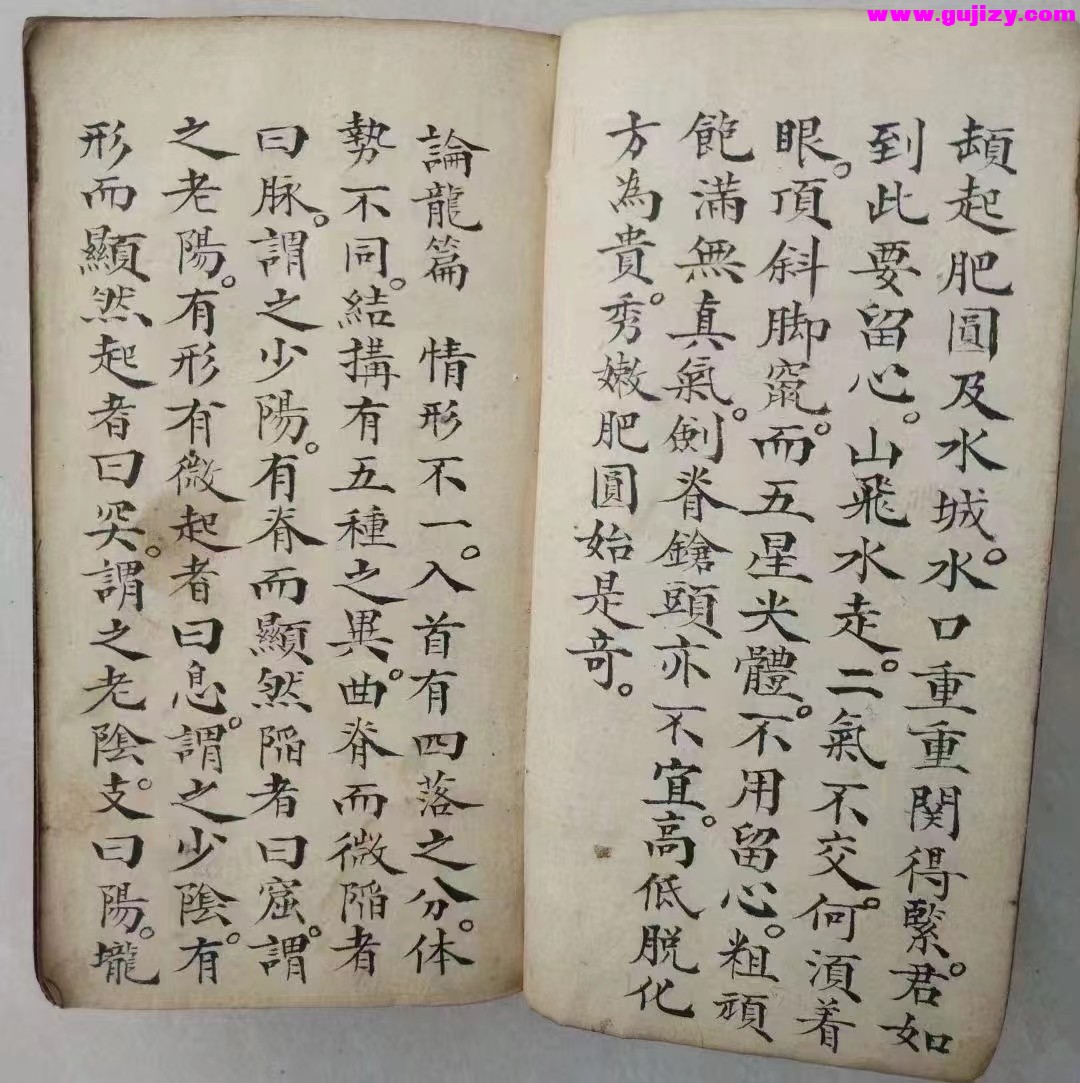 www.gujizy.com
頔起肥圓及水城。水口重重関得緊。君如
到此要留心。山飛水走。二氣不交。何湏着
眼。頂斜脚竄。而五星尖體。不用留心。粗頑
飽滿無真氣。劍脊鎗頭亦不宜。高低脱化
方為貴。秀嫩肥圓始是竒。
論龍篇 情形不一。入首有四落之分。体
勢不同。結搆有五種之異。曲脊而微陷者
曰脉。謂之少陽。有脊而顯然陷者曰窟。謂
之老陽。有形有微起者曰息。謂之少陰。有
形而顯然起者曰突。謂之老陰。支曰陽。壠